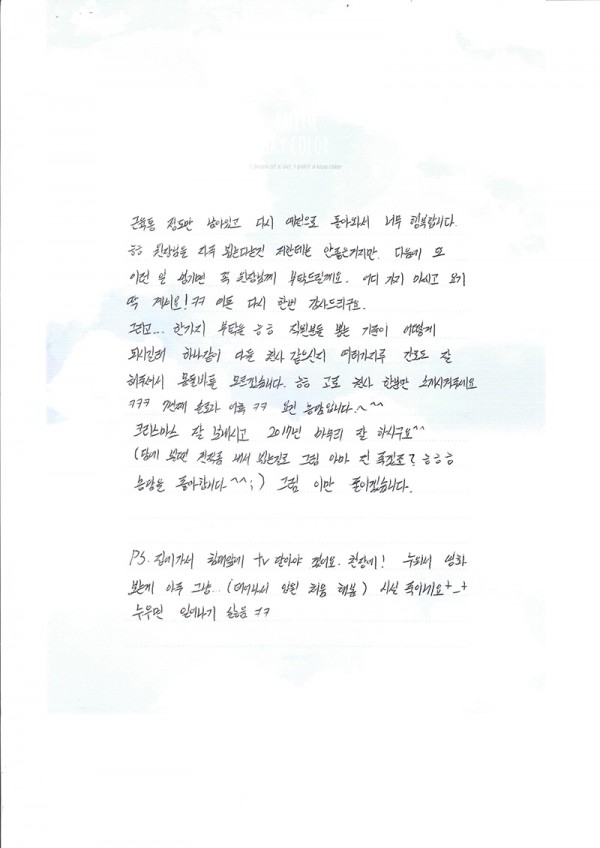 근육통 정도만 남아있고 다시 예전으로 돌아와서 너무 행복합니다.
ㅎㅎ 원장님을 자주 뵙는다는건 저한테는 안좋은거지만. 다음에 또
이런 일 생기면 꼭 원장님께 부탁드릴께요. 어디 가지 마시고 여기
딱 계세요! ㅋㅋ 여튼 다시 한번 감사드리구요.
그리고... 한가지 부탁을 ㅎㅎ 직원분들 뽑는 기준이 어떻게
되시길래 하나같이 다들 천사 같으신지 여러가지루 간호도 잘
해주셔서 몸둘바를 모르겠습니다. ㅎㅎ 고로 천사 한분만 소개시켜주세요
ㅋㅋㅋ 7년째 혼로라 이룩 ㅋㅋ 요건 농담입니다.^^
크리스마스 잘 보내시고 2017년 마무리 잘 하시구요^^
(담에 뵐땐 진작 세서 뵙는걸로 그럼 아마 전 죽겠죠? ㅎㅎㅎ
농담을 좋아합니다^^;) 그럼 이만 줄이겠습니다.
PS. 집에가서 침대앞에 tv 달아야 겠어요. 천장에! 누워서 영화
보는게 아주 그냥.. (태어나서 입원 처음 해봄) 시설 죽이네요+_+
누우면 일어나기 싫음 ㅋㅋ